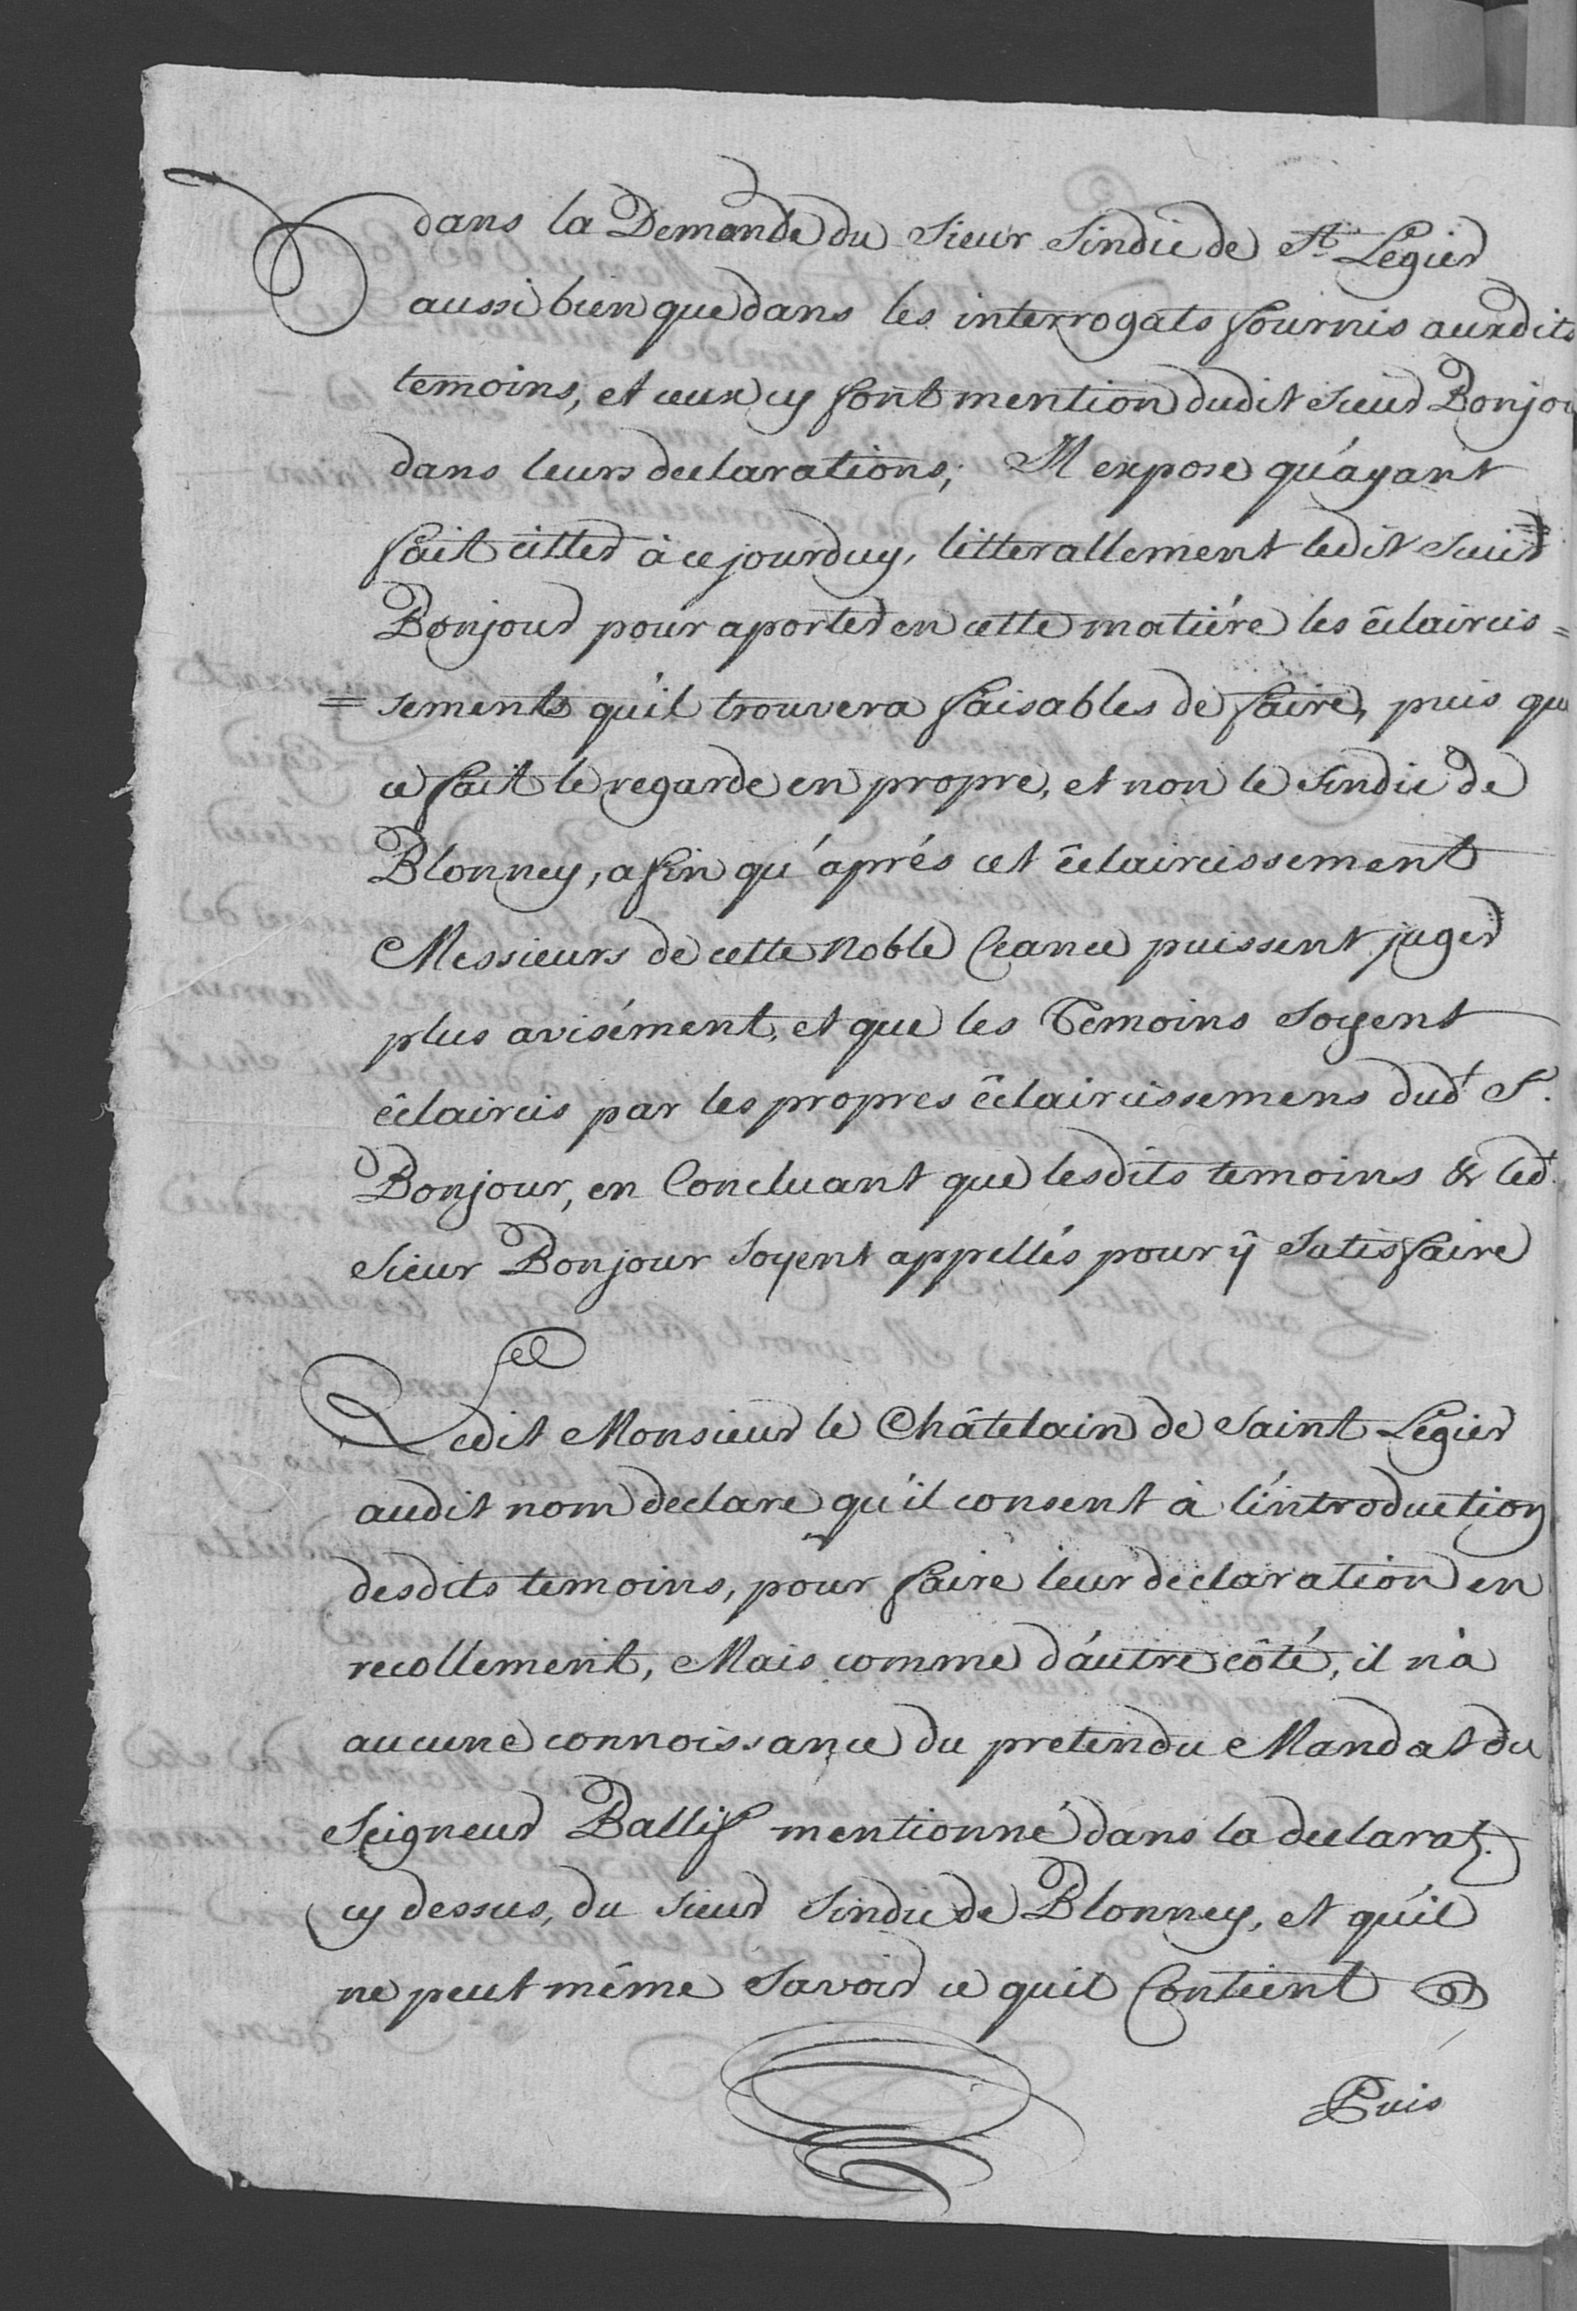 dans la Demande du Sieur Sindic de St. Légier
aussi bien que dans les interrogats fournis auxdits
temoins, et ceux cy font mention dudit Sieur Bonjou
dans leurs declarations; Il expose qu'ayant
fait citter à ce jourduy, litterallement ledit Sieur
Bonjour pour aporter en cette matiére les êclaircis=
=sements qu'il trouvera faisables de faire, puis que
ce fait le regarde en propre, et non le Sindic de
Blonney, afin qu'aprés cet êclaircissement
Messieurs de cette Noble Ceance puissent juger
plus avisément, et que les Temoins soyent
êclaircis par les propres êclaircissemens dudt. Sr.
Bonjour, en Concluant que lesdits temoins & ledt.
Sieur Bonjour soyent appellés pour ÿ satisfaire
Ledit Monsieur le Châtelain de Saint Légier
audit nom declare qu'il consent à l'introduction
desdits temoins, pour faire leur declaration en
recollement, Mais comme d'autre côté, il n'a
aucune connoissance du pretendu Mandat du
Seigneur Ballif mentionné dans la declarat.
cy dessus, du Sieur Sindic de Blonney, et qu'il
ne peut même savoir ce quil Contient
Puis